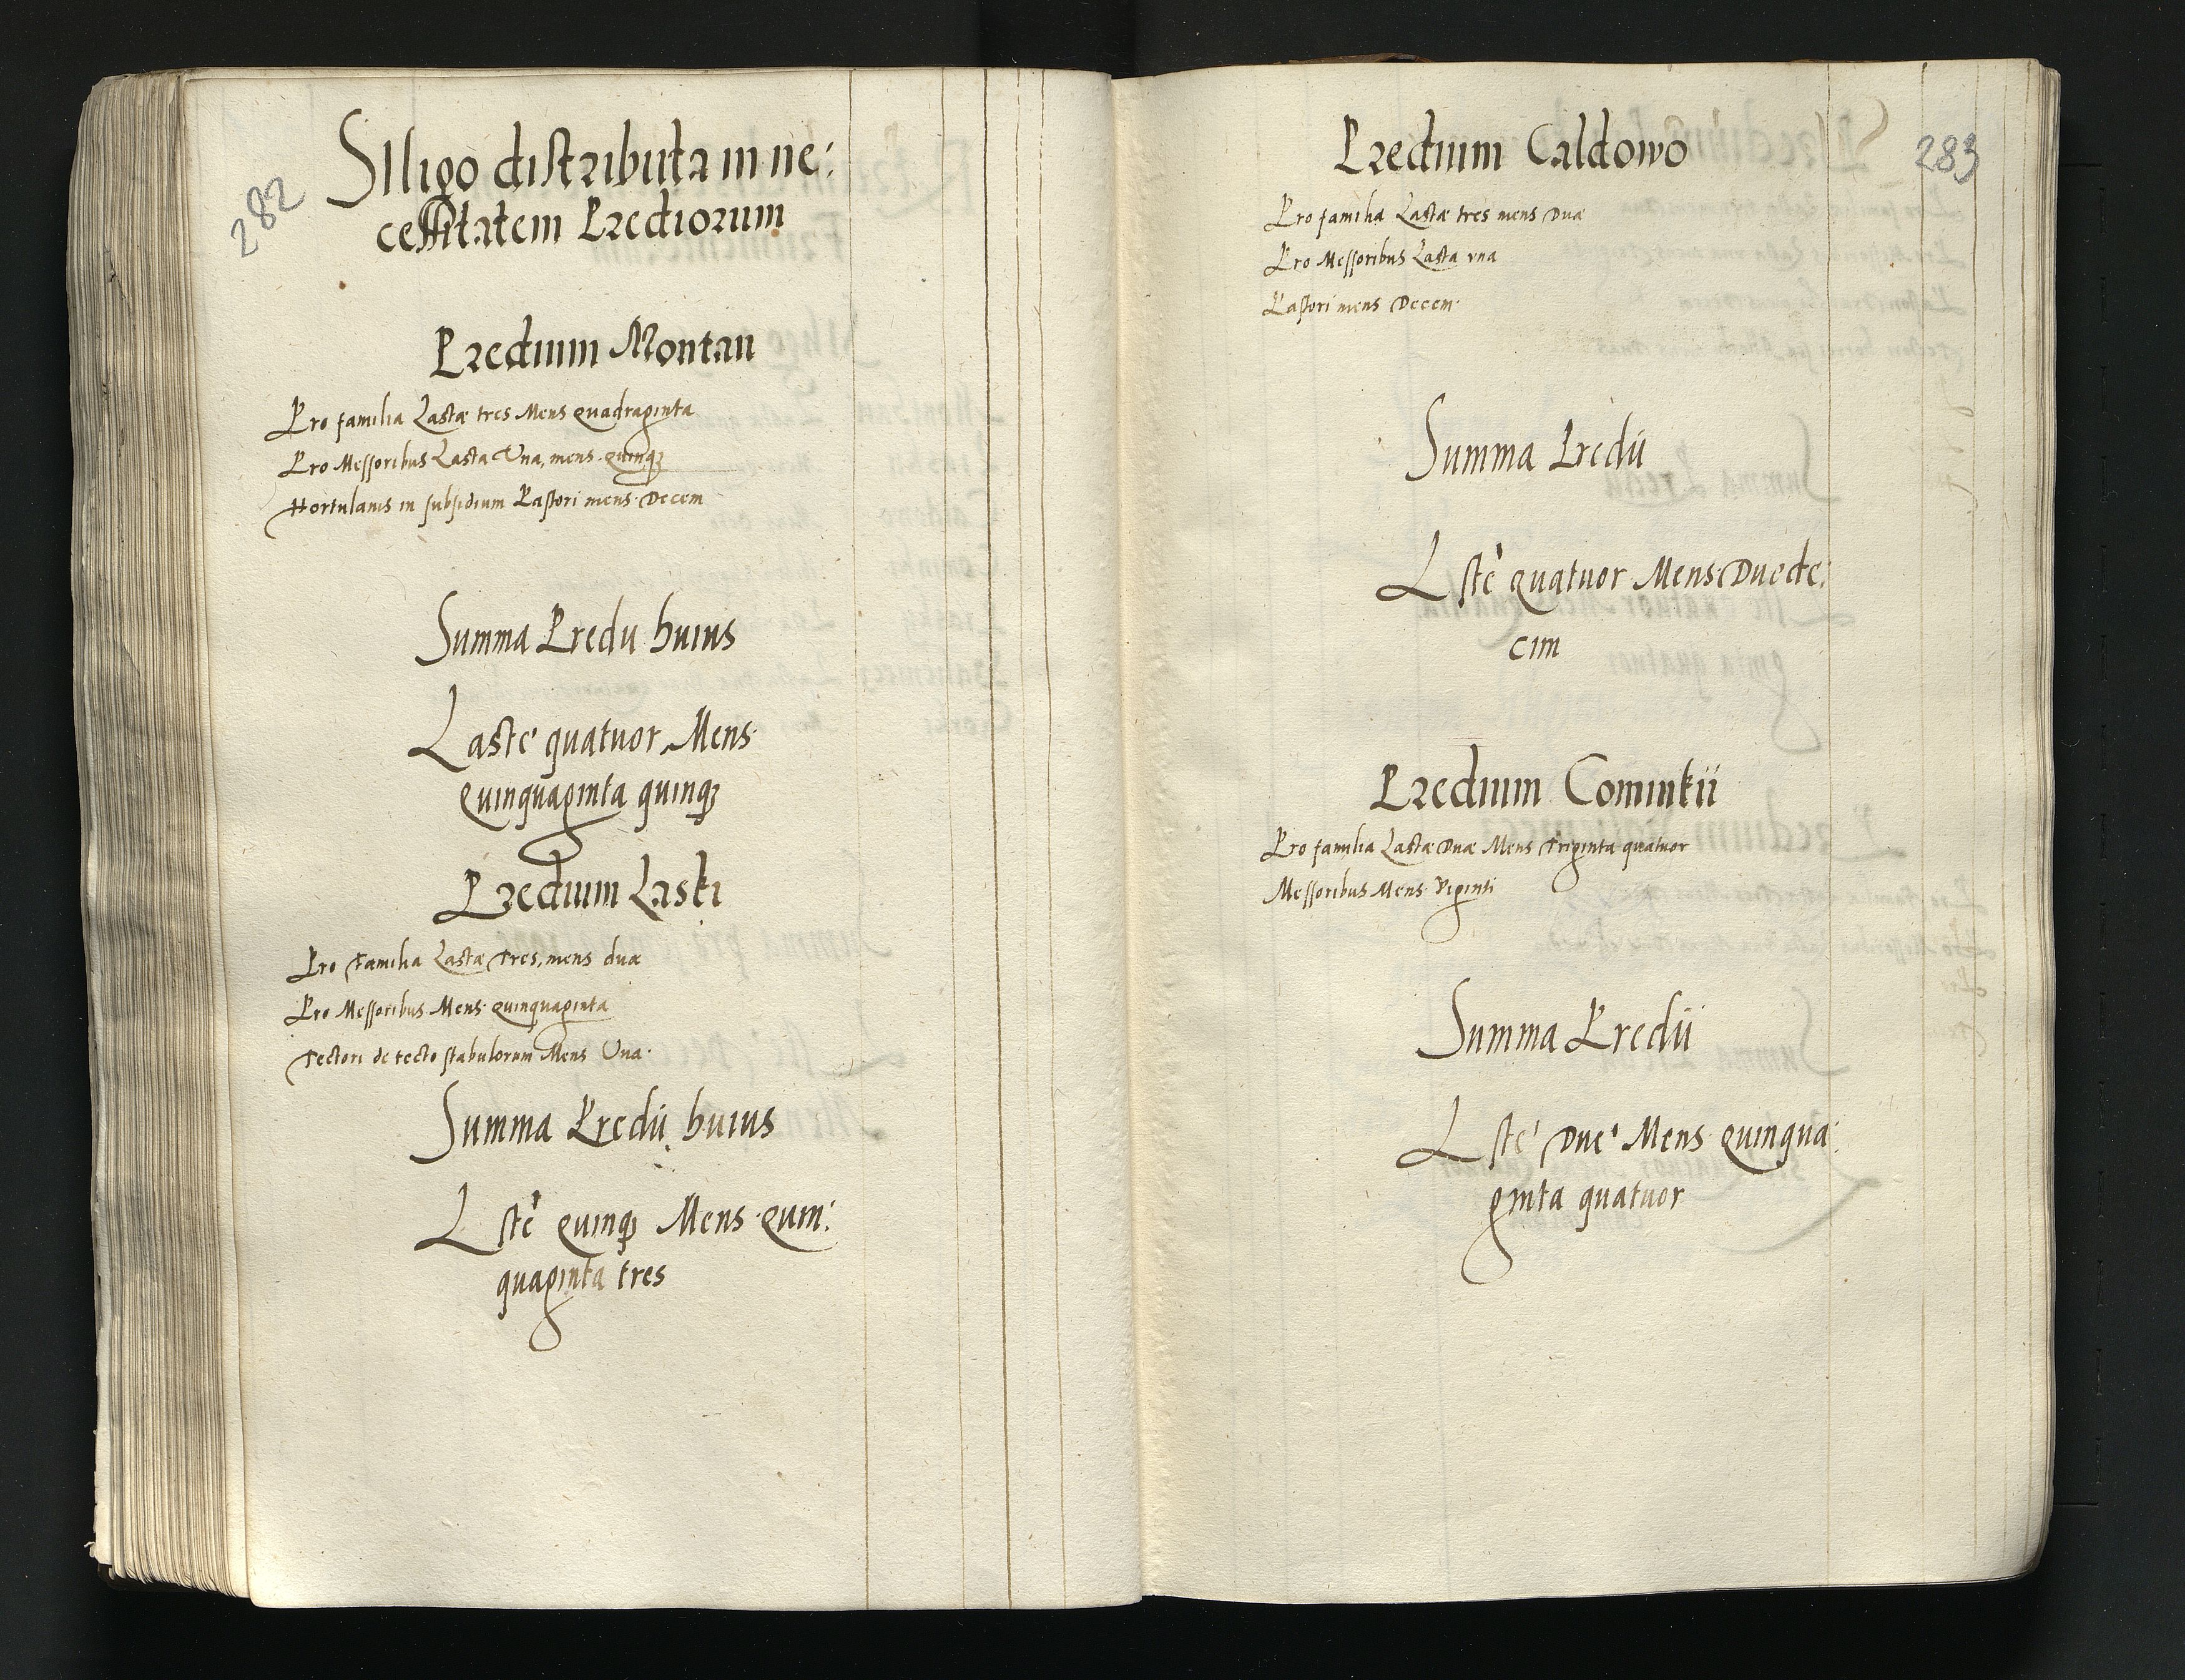 282
Siligo distributa in ne:
cessitatem Prediorum
Predium Montau
Pro familia Lastæ tres Mens quadraginta
Pro Messoribus Lasta Una, mens quinqȝ
Hortulanis in subsidium Pastori mens. Decem
Summa Predii huius
Laste quatuor Mens.
Quinquaginta quinqȝ
Predium Laski
Pro Familia Lastæ Tres, mens duæ
Pro Messoribus Mens. quinquaginta
Tectori de tecto stabulorum Mens Una.
Summa Predii huius
Lste quinqȝ Mens. quin:
quaginta tres
283
Predium Caldowo
Pro familia Lastæ tres mens Duæ
Pro Messoribus Lasta vna
Pastori mens Decem.
Summa Predii
Lste quatuor Mens. Duode:
cim
Predium Cominkii
Pro familia Lastæ Duæ Mens Triginta quatuor
Messoribus Mens. Viginti
Summa Predii
Lste Due Mens quinqua:
ginta quatuor